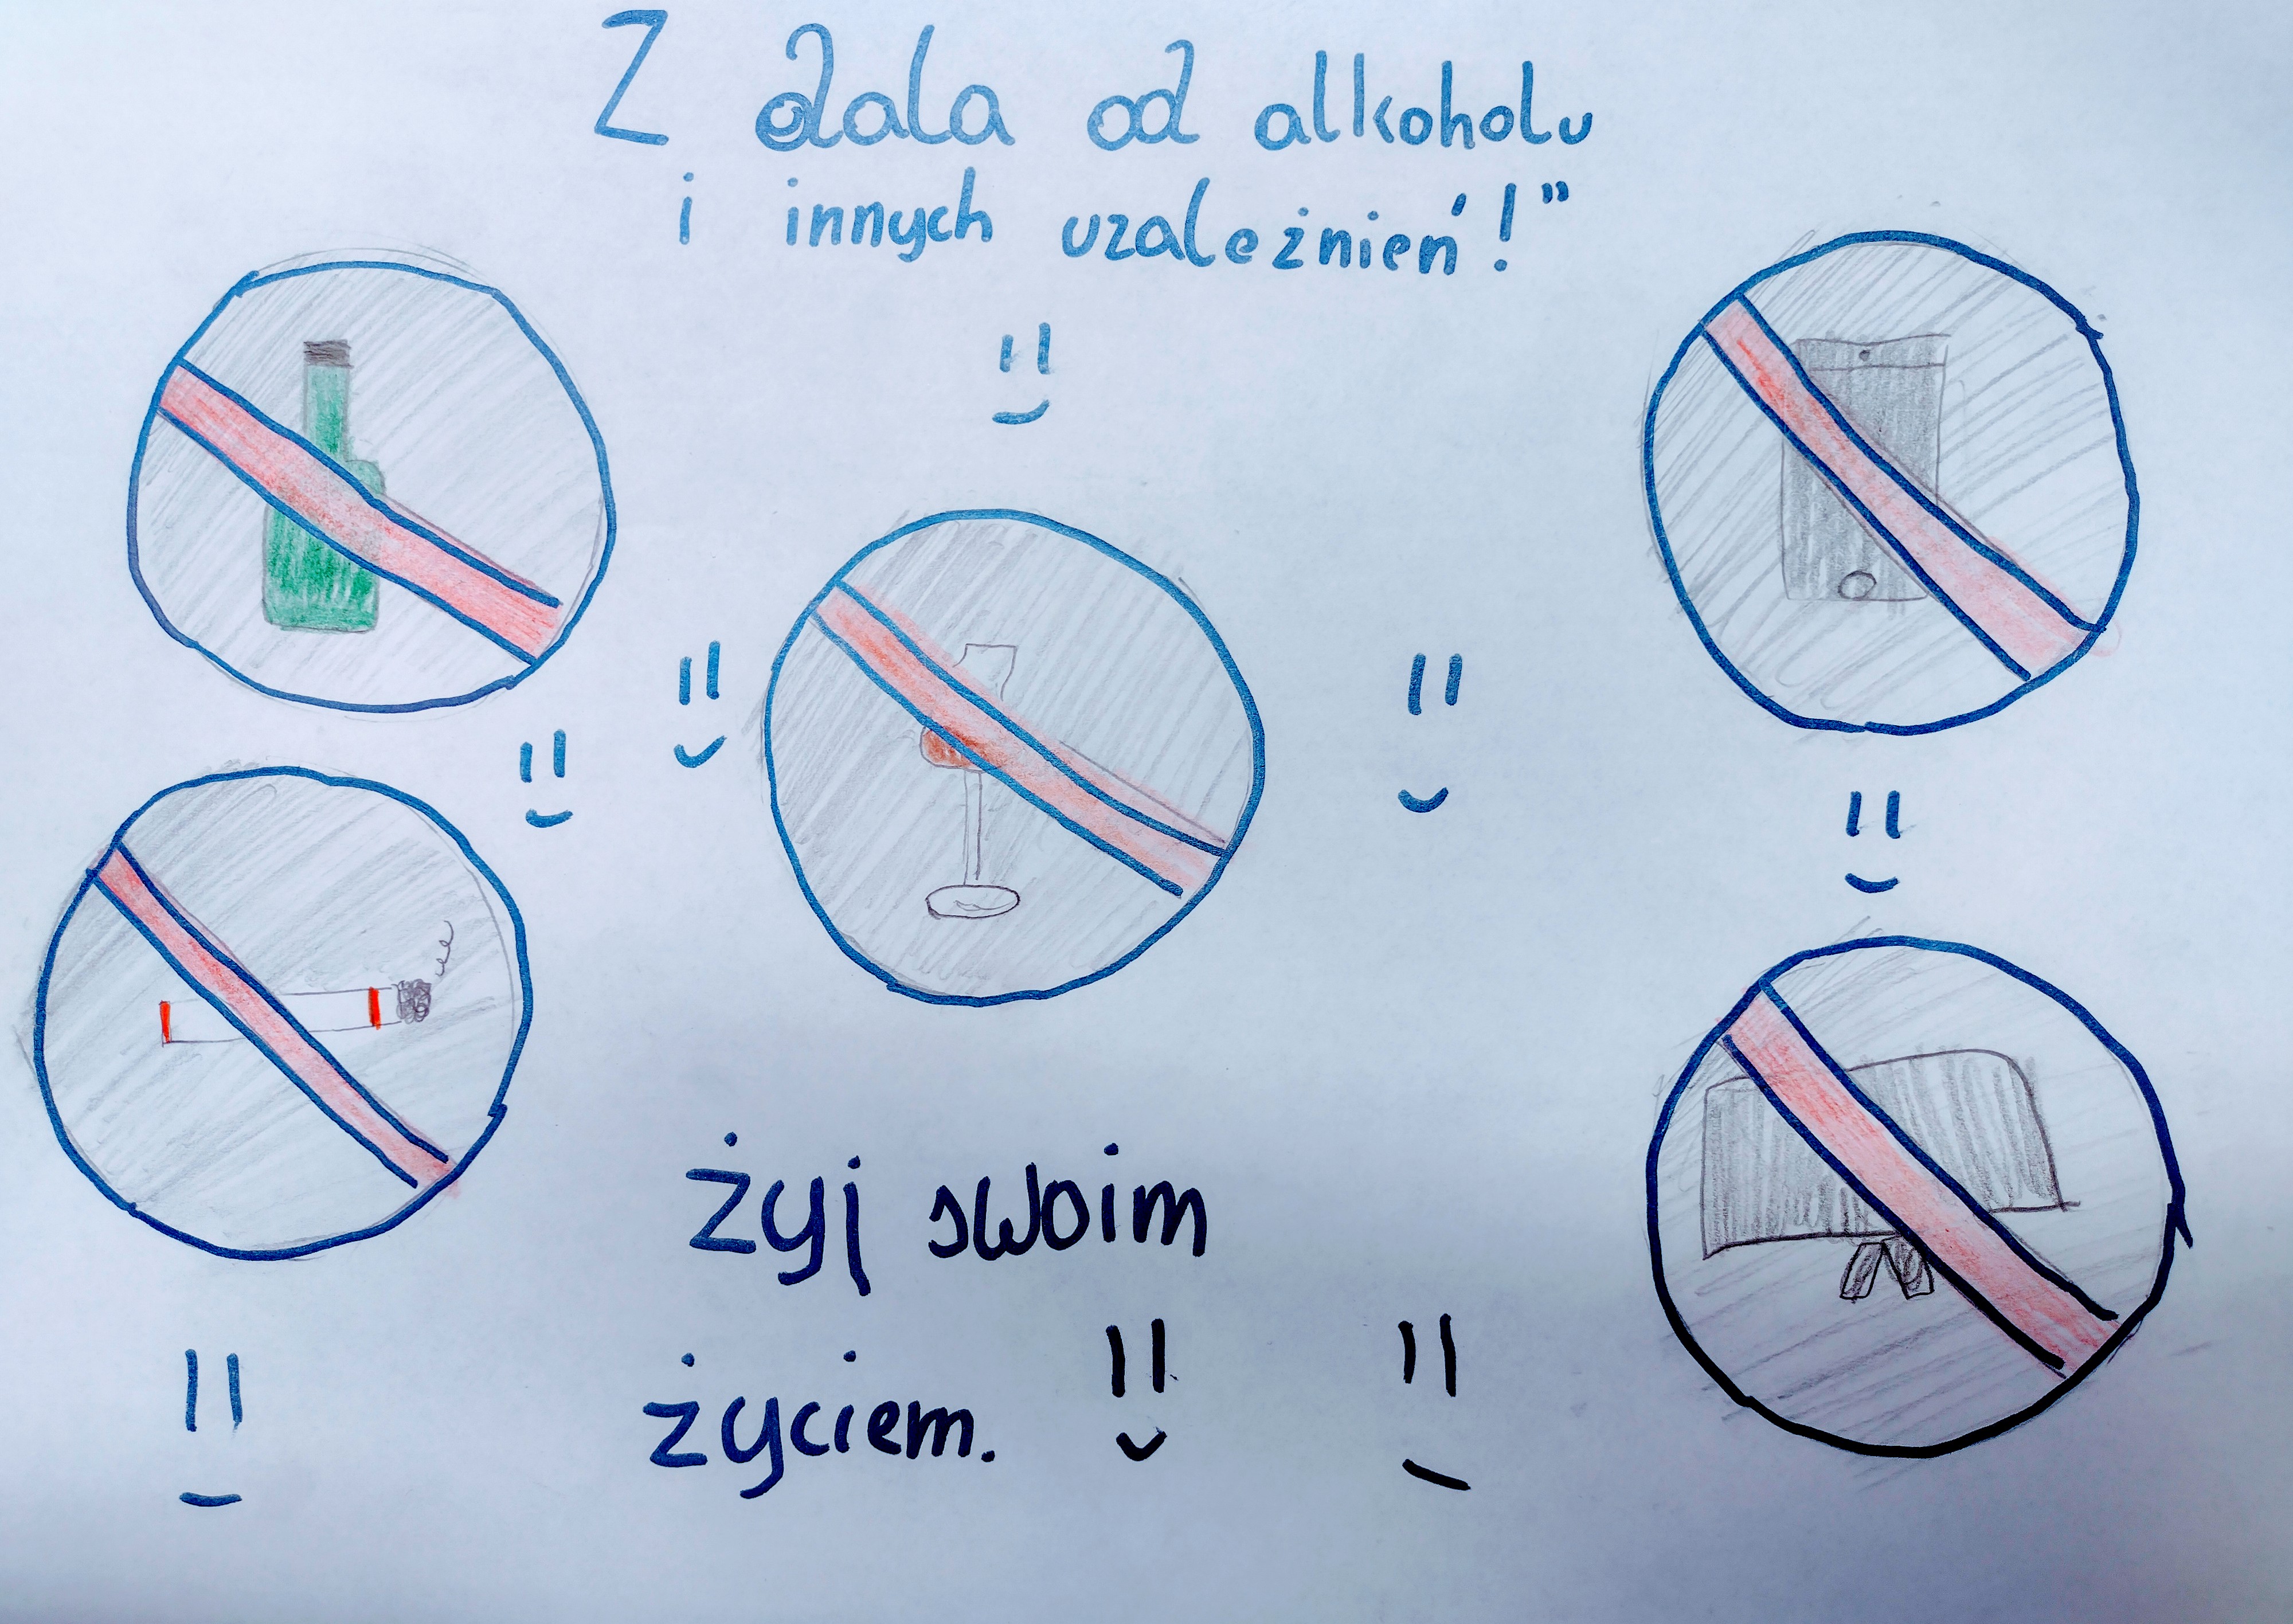 Z dala od alkoholu
i innych uzależnień!”
żyj swoim
życiem.